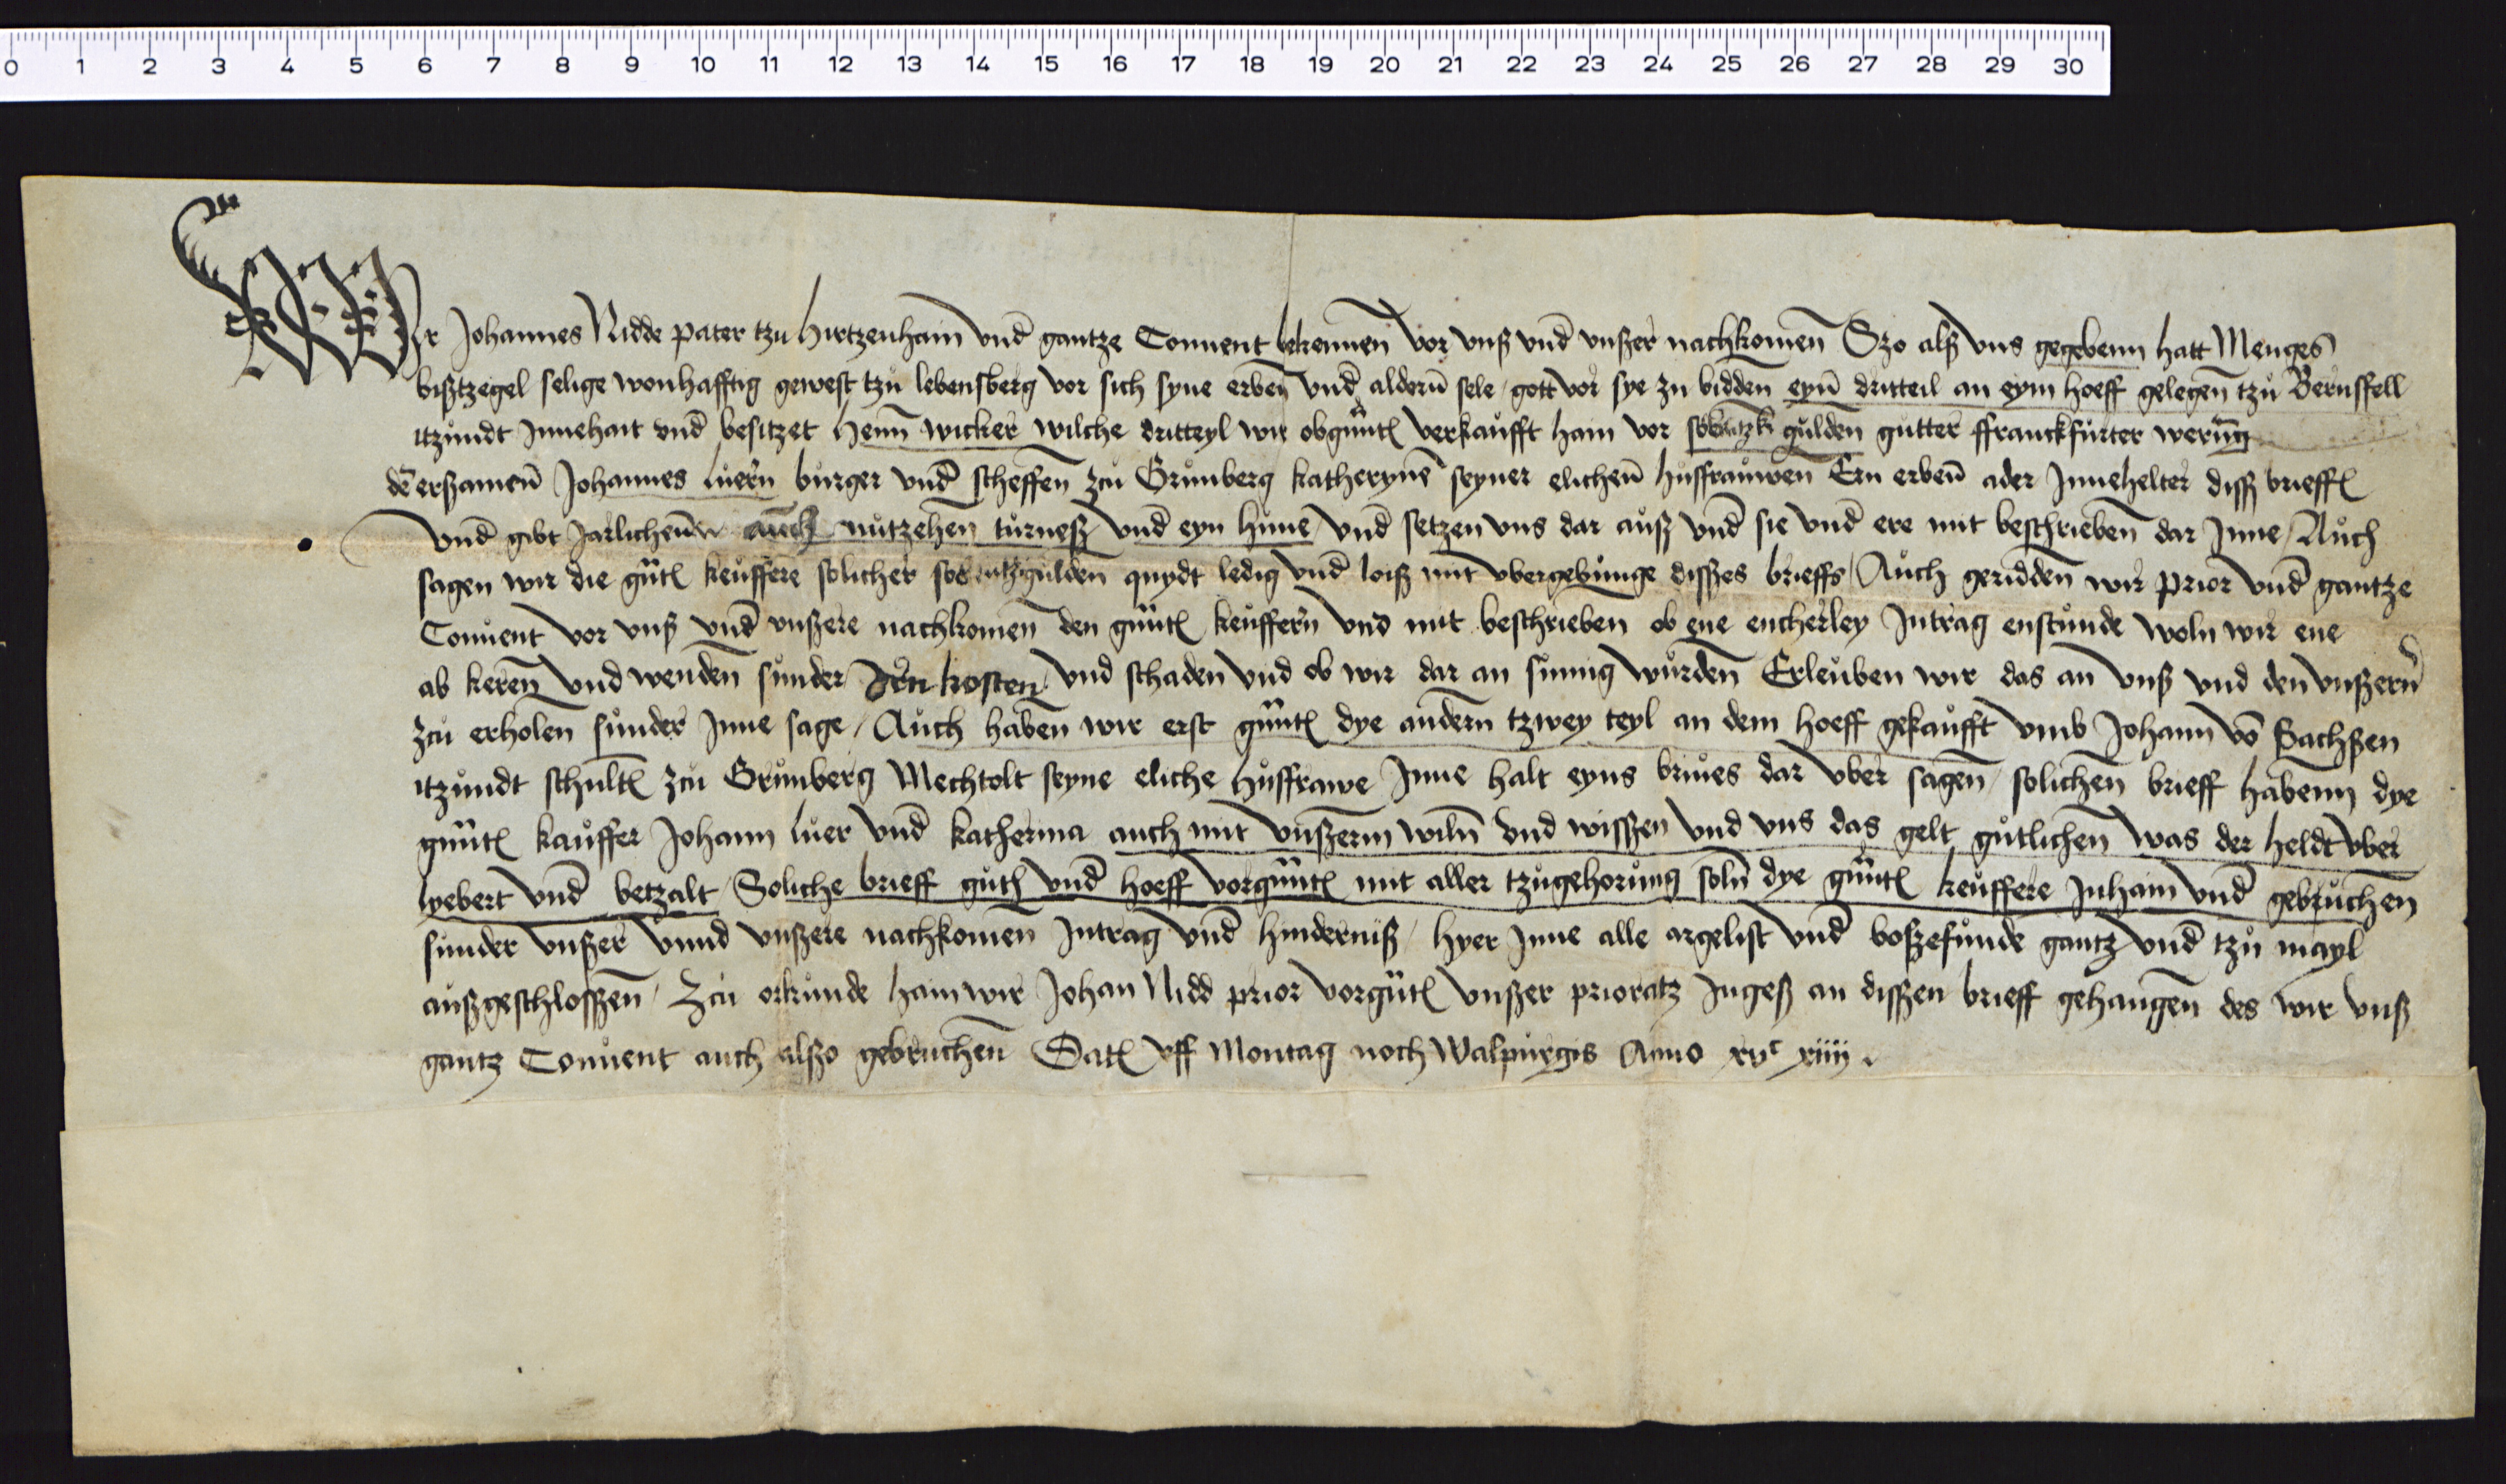 0 1 2 3 4 5 6 7 8 9 10 11 12 13 14 15 16 17 18 19 20 21 22 23 24 25 26 27 28 29 30
Wyr Johannes Nidde pater tzu Hirtzenhain vnd gantze Conuent bekennen vor vnß vnd vnßer nachkomen Szo alß vns gegebenn hatt Menges
bißtzegel selige wonhafftig gewest tzu lebensberg vor sich syne erben vnd aldern sele gott vor sye zu bidden eyn dritteil an eym hoeff gelegen tzu Bernsfell
itzundt Innehait vnd besitzet Henn wicker wilche dritteyl wir obgnt verkaufft hain vor gulden gutter ffranckfurter werung
de erßamen Johannes luern burger vnd scheffen zcu Grunberg katheryne seyner elichen hussfrauwen Ern erben ader Innehelter diss brieffs
vnd gibt Jarlichen auch nutzehen turneß vnd eyn hune vnd setzen vns dar auß vnd sie vnd ere mit beschrieben dar Inne Auch
sagen wir die gnt keuffere solicher gulden quydt ledig vnd loiß mit vbergebunge dißes brieffs Auch geridden wir prior vnd gantze
Conuent vor vnß vnd vnßere nachkomen den gnt keuffern vnd mit beschrieben ob ene encherley Intrag enstunde woln wir ene
ab keren vnd wenden sunder Irn kosten vnd schaden vnd ob wir dar an sumig wurden Erleuben wir das an vnß vnd den vnßern
zcu erholen sunder Inne sage Auch haben wir erst gnt dye andern tzwey teyl an dem hoeff gekaufft vmb Johann vo Sachßen
itzundt schult zcu Grunberg Mechtolt seyne eliche hussfrawe Inne halt eyns briues dar vber sagen solichen brieff habenn dye
gnt kauffer Johann luer vnd katherina auch mit vnßerm wiln vnd wissen vnd vns das gelt gutlichen was der heldt vber
lyebert vnd betzalt Soliche brieff gut vnd hoeff vorgnt mit aller tzugehorung soln dye gnt keuffere Inhain vnd gebruchen
sunder vnßer vnnd vnßere nachkomen Intrag vnd hinderniß hyer Inne alle argelist vnd boßefunde gantz vnd tzu mayl
außgeschloßen Zcu orkunde hain wir Johan Nidd prior vorgnt vnßer prioratz Ingeß an dißen brieff gehangen des wir vnß
gantz Conuent auch alßo gebruchen Dat vff Montag noch Walpurgis Anno xvc xiiij